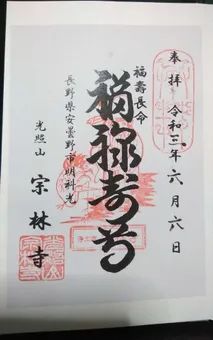 奉拝 令和三年六月六日
福壽長命
福禄寿尊
長野県安曇野市明科光
光照山
宗林寺